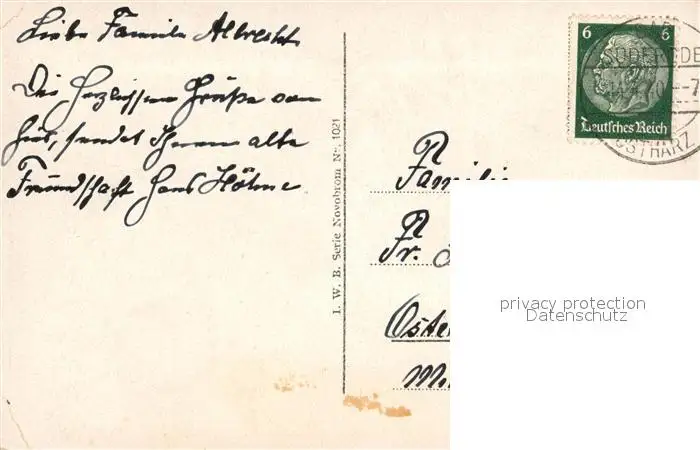 Liebe Familie Albrecht
Die herzlichsten Grüße von
hier, sendet Ihnen alte
Freundschaft Hans Höhne
I. W. B. Serie Novobrom Nr. 1021
6 6
Deutsches Reich
OSTHARZ
Familie
Fr.
Oste
privacy protection
Datenschutz